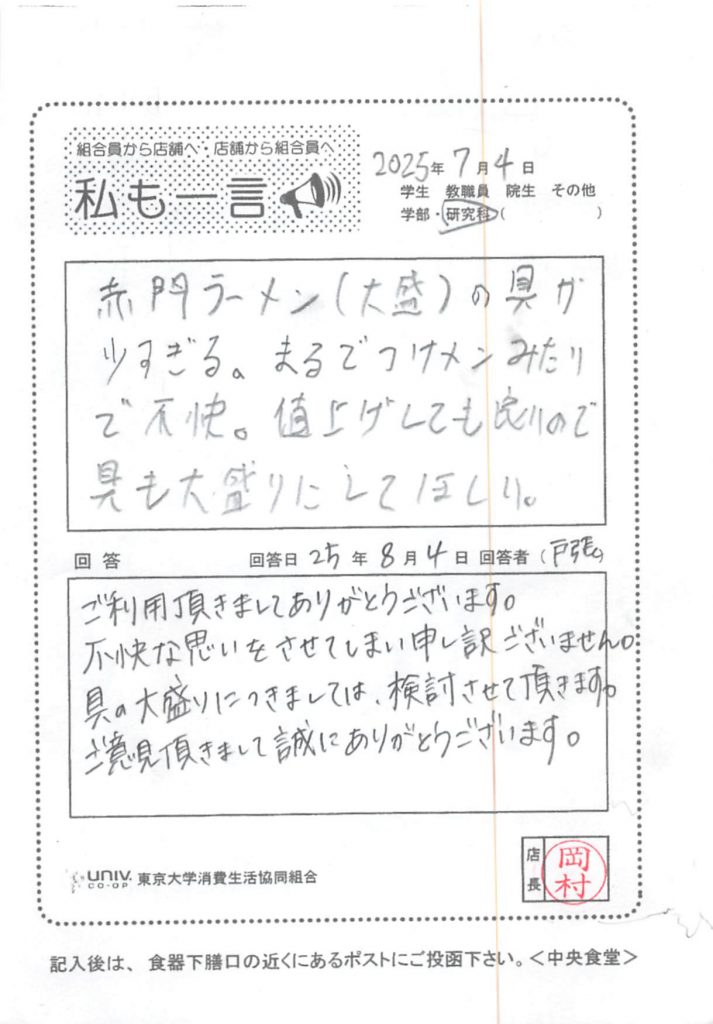 組合員から店舗へ・店舗から組合員へ
私も一言
2025年 7月 4日
学生 教職員 院生 その他
学部・研究科( )
赤門ラーメン(大盛)の具が
少すぎる。まるでつけメンみたい
で不快。値上げしても良いので
具も大盛りにしてほしい。
回答 回答日 25年 8月 4日 回答者(戸張)
ご利用頂きましてありがとうございます。
不快な思いをさせてしまい申し訳ございません。
具の大盛りにつきましては、検討させて頂きます。
ご意見頂きまして誠にありがとうございます。
店長 岡村
UNIV. CO-OP 東京大学消費生活協同組合
記入後は、食器下膳口の近くにあるポストにご投函下さい。<中央食堂>